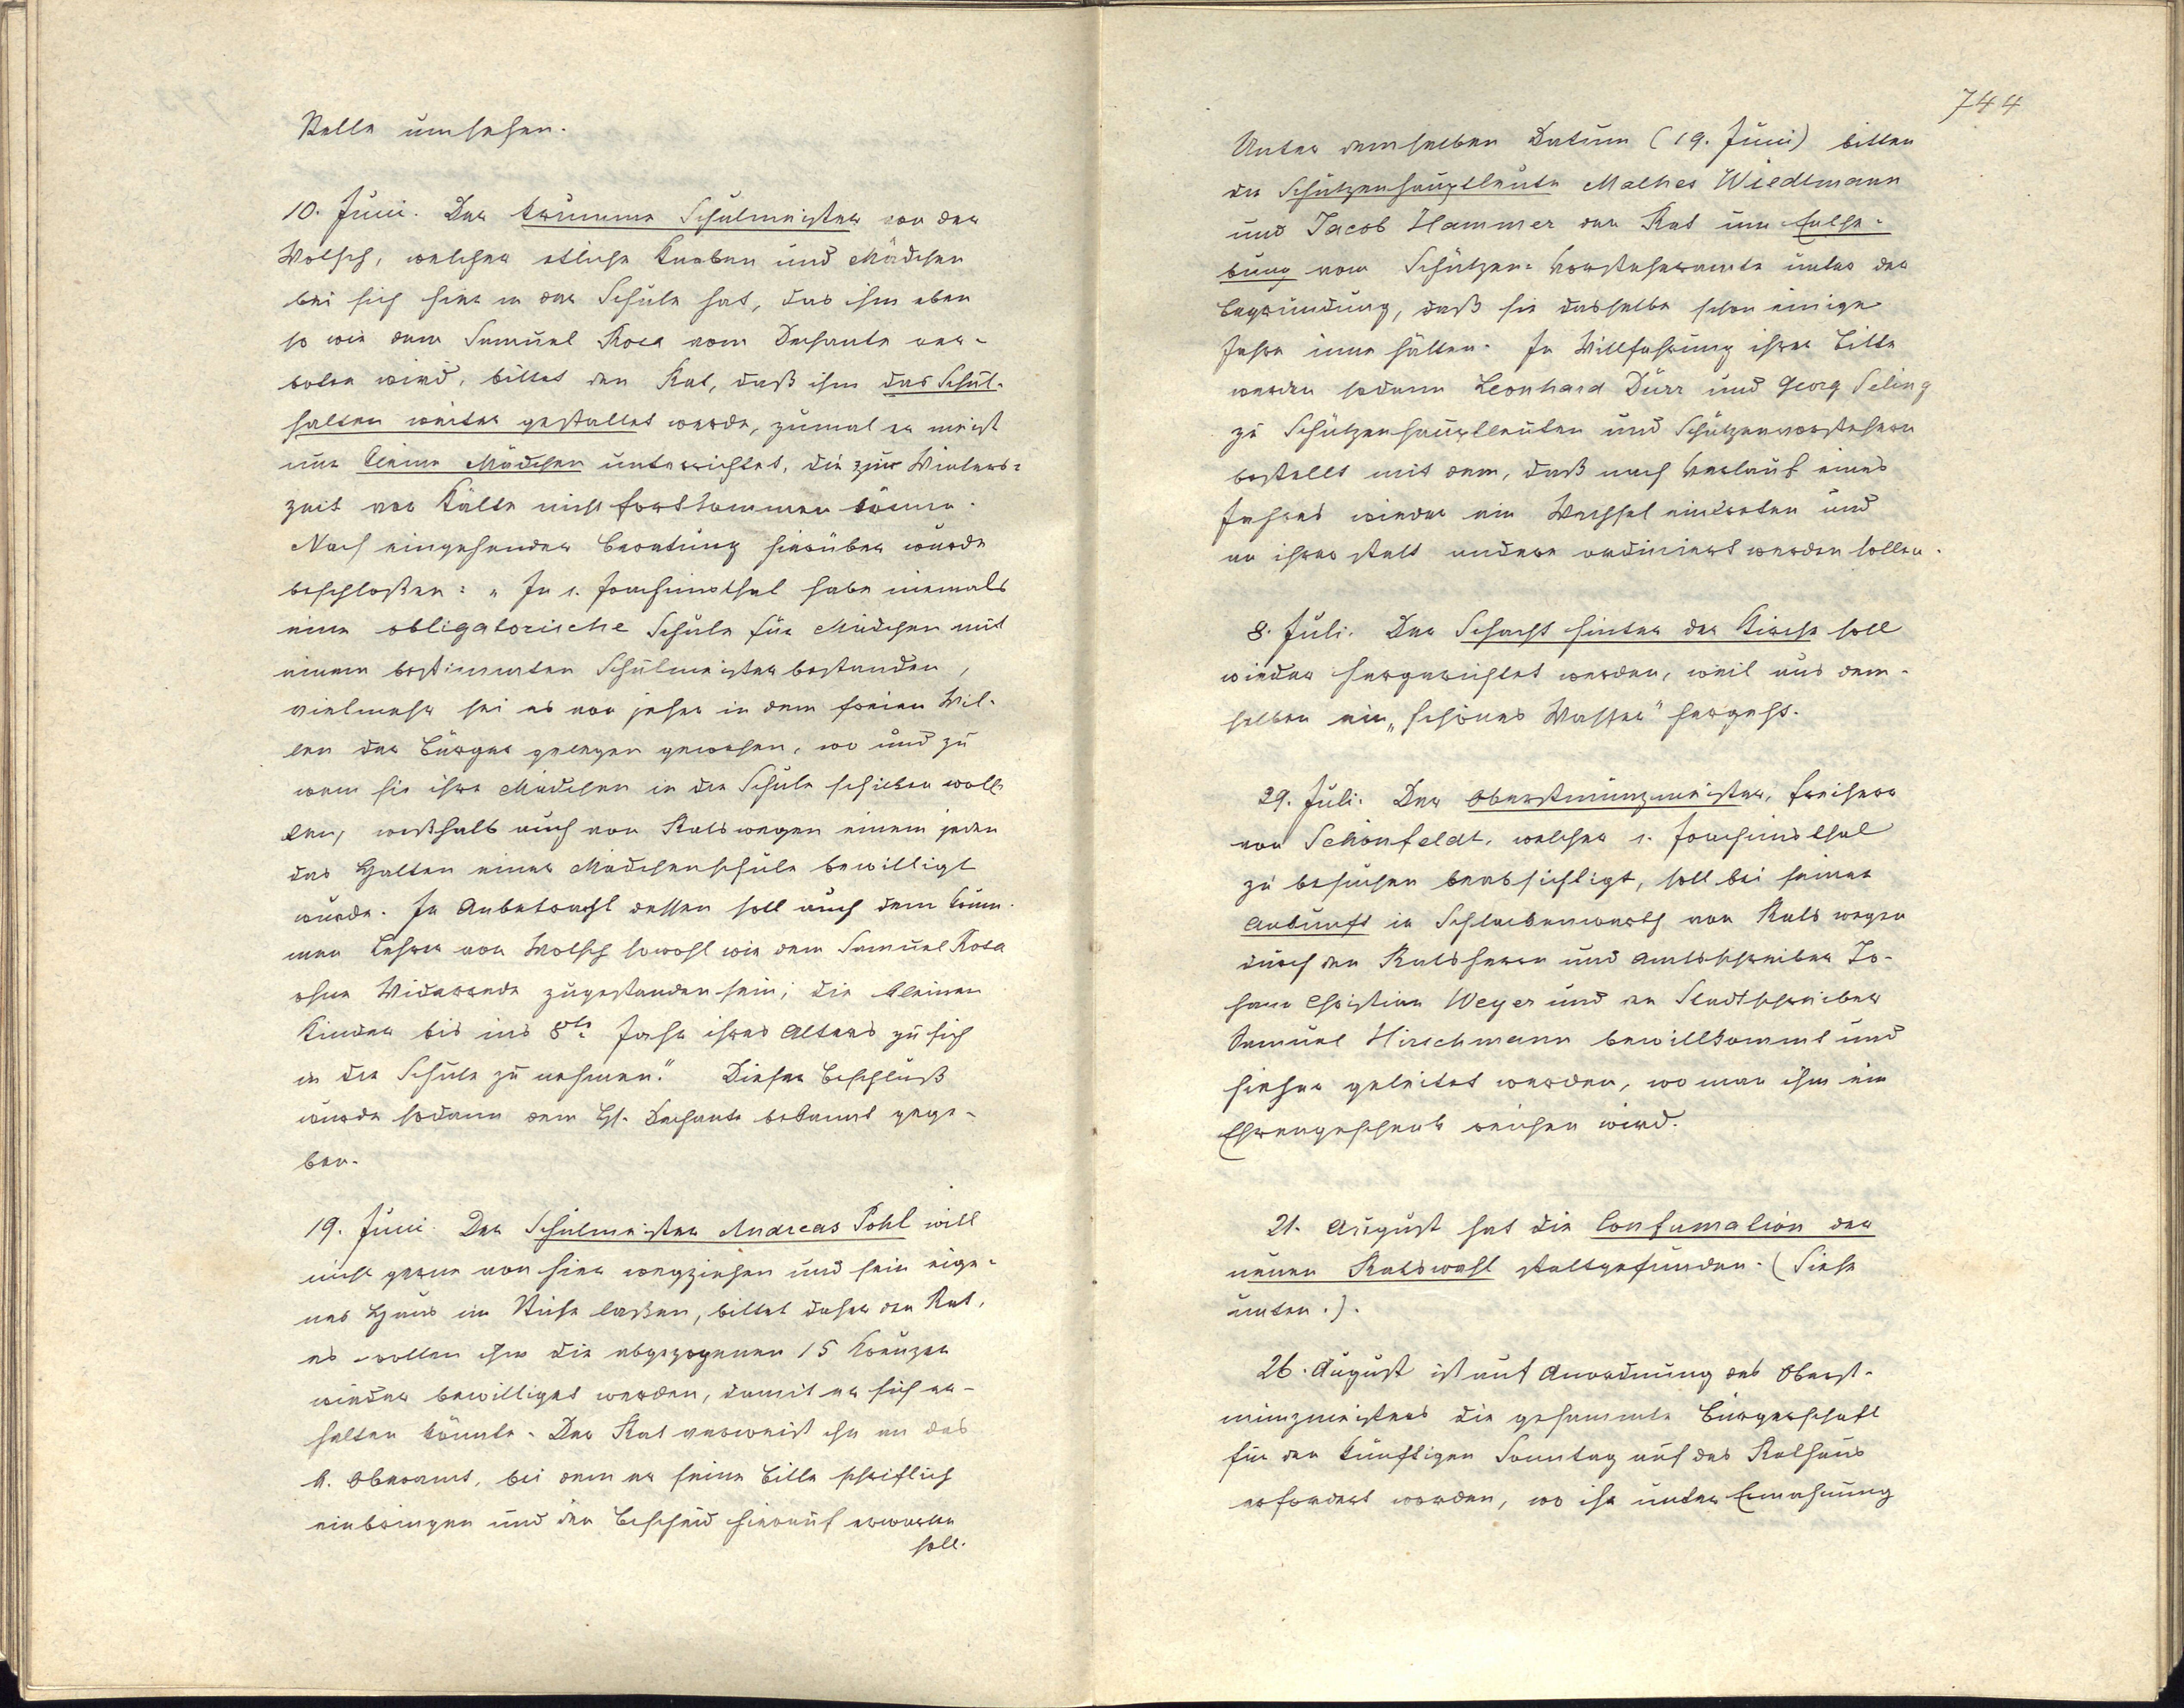 Stelle umsehen.
10. Juni. Der krumme Schulmeister von der
Wolsch, welcher etliche Knaben und Mädchen
bei sich hier in der Schule hat, das ihm eben
so wie dem Samuel Rosa vom Dechante ver-
boten wird, bittet den Rat, daß ihm das Schul-
halten weiter gestattet werde, zumal er meist
nur kleine Mädchen unterrichtet, die zur Winters=
zeit vor Kälte nicht fortkommen können.
Nach eingehender Beratung hierüber wurde
beschloßen: „In s. Joachimsthal habe niemals
eine obligatorische Schule für Mädchen mit
einem bestimmten Schulmeister bestanden,
vielmehr sei es von jeher in dem freien Wil-
len der Bürger gelegen gewesen, wo und zu
wem sie ihre Mädchen in die Schule schicken woll-
ten, weßhalb auch von Ratswegen einem jeden
das Halten einer Mädchenschule bewilligt
wurde. In Anbetracht dessen soll auch dem krum-
men Lehrer von Wolsch sowohl wie dem Samuel Rosa
ohne Widerrede zugestanden sein, die kleinen
Kinder bis ins 8te Jahr ihres Alters zu sich
in die Schule zu nehmen." Dieser Beschluß
wurde sodann dem H. Dechante bekannt gege-
ben.
19. Juni. Der Schulmeister Andreas Pohl will
nicht gerne von hier wegziehen und sein eige=
nes Haus im Stiche laßen, bittet daher den Rat,
es wollen ihm die abgezogenen 15 Kreuzer
wieder bewilliget werden, damit er sich er-
halten könnte. Der Rat verweist ihn an das
k. Oberamt, bei dem er seine Bitte schriftlich
einbringen und den Bescheid hierauf erwarten
soll.
744
Unter demselben Datum (19. Juni) bitten
die Schützenhauptleute Mathes Wiedtmann
und Jacob Hammer den Rat um Enthe=
bung vom Schützen=Vorsteheramte unter der
Begründung, daß sie dasselbe schon einige
Jahre inne hätten. In Willfahrung ihrer Bitte
werden sodann Leonhard Dürr und Georg Seling
zu Schützenhauptleuten und Schützenvorstehern
bestellt mit dem, daß nach Verlauf eines
Jahres wieder ein Wechsel eintreten und
an ihrer statt andere ordiniert werden sollen.
8. Juli. Der Schacht hinter der Kirche soll
wieder hergerichtet werden, weil aus dem-
selben ein „schönes Wasser" hergeht.
29. Juli. Der Oberstmünzmeister, Freiherr
von Schönfeldt, welcher s. Joachimsthal
zu besuchen beabsichtigt, soll bei seiner
Ankunft in Schlackenwerth von Rats wegen
durch den Ratsherrn und Amtsschreiber Jo-
hann Christian Weyer und den Stadtschreiber
Samuel Hirschmann bewillkommt und
hieher geleitet werden, wo man ihm ein
Ehrengeschenk reichen wird.
21. August hat die Confumation der
neuen Ratswahl stattgefunden. (Siehe
unten.).
26. August ist auf Anordnung des Oberst-
münzmeisters die gesammte Bürgerschaft
für den künftigen Sonntag auf das Rathaus
erfordert worden, wo ihr unter Ermahnung